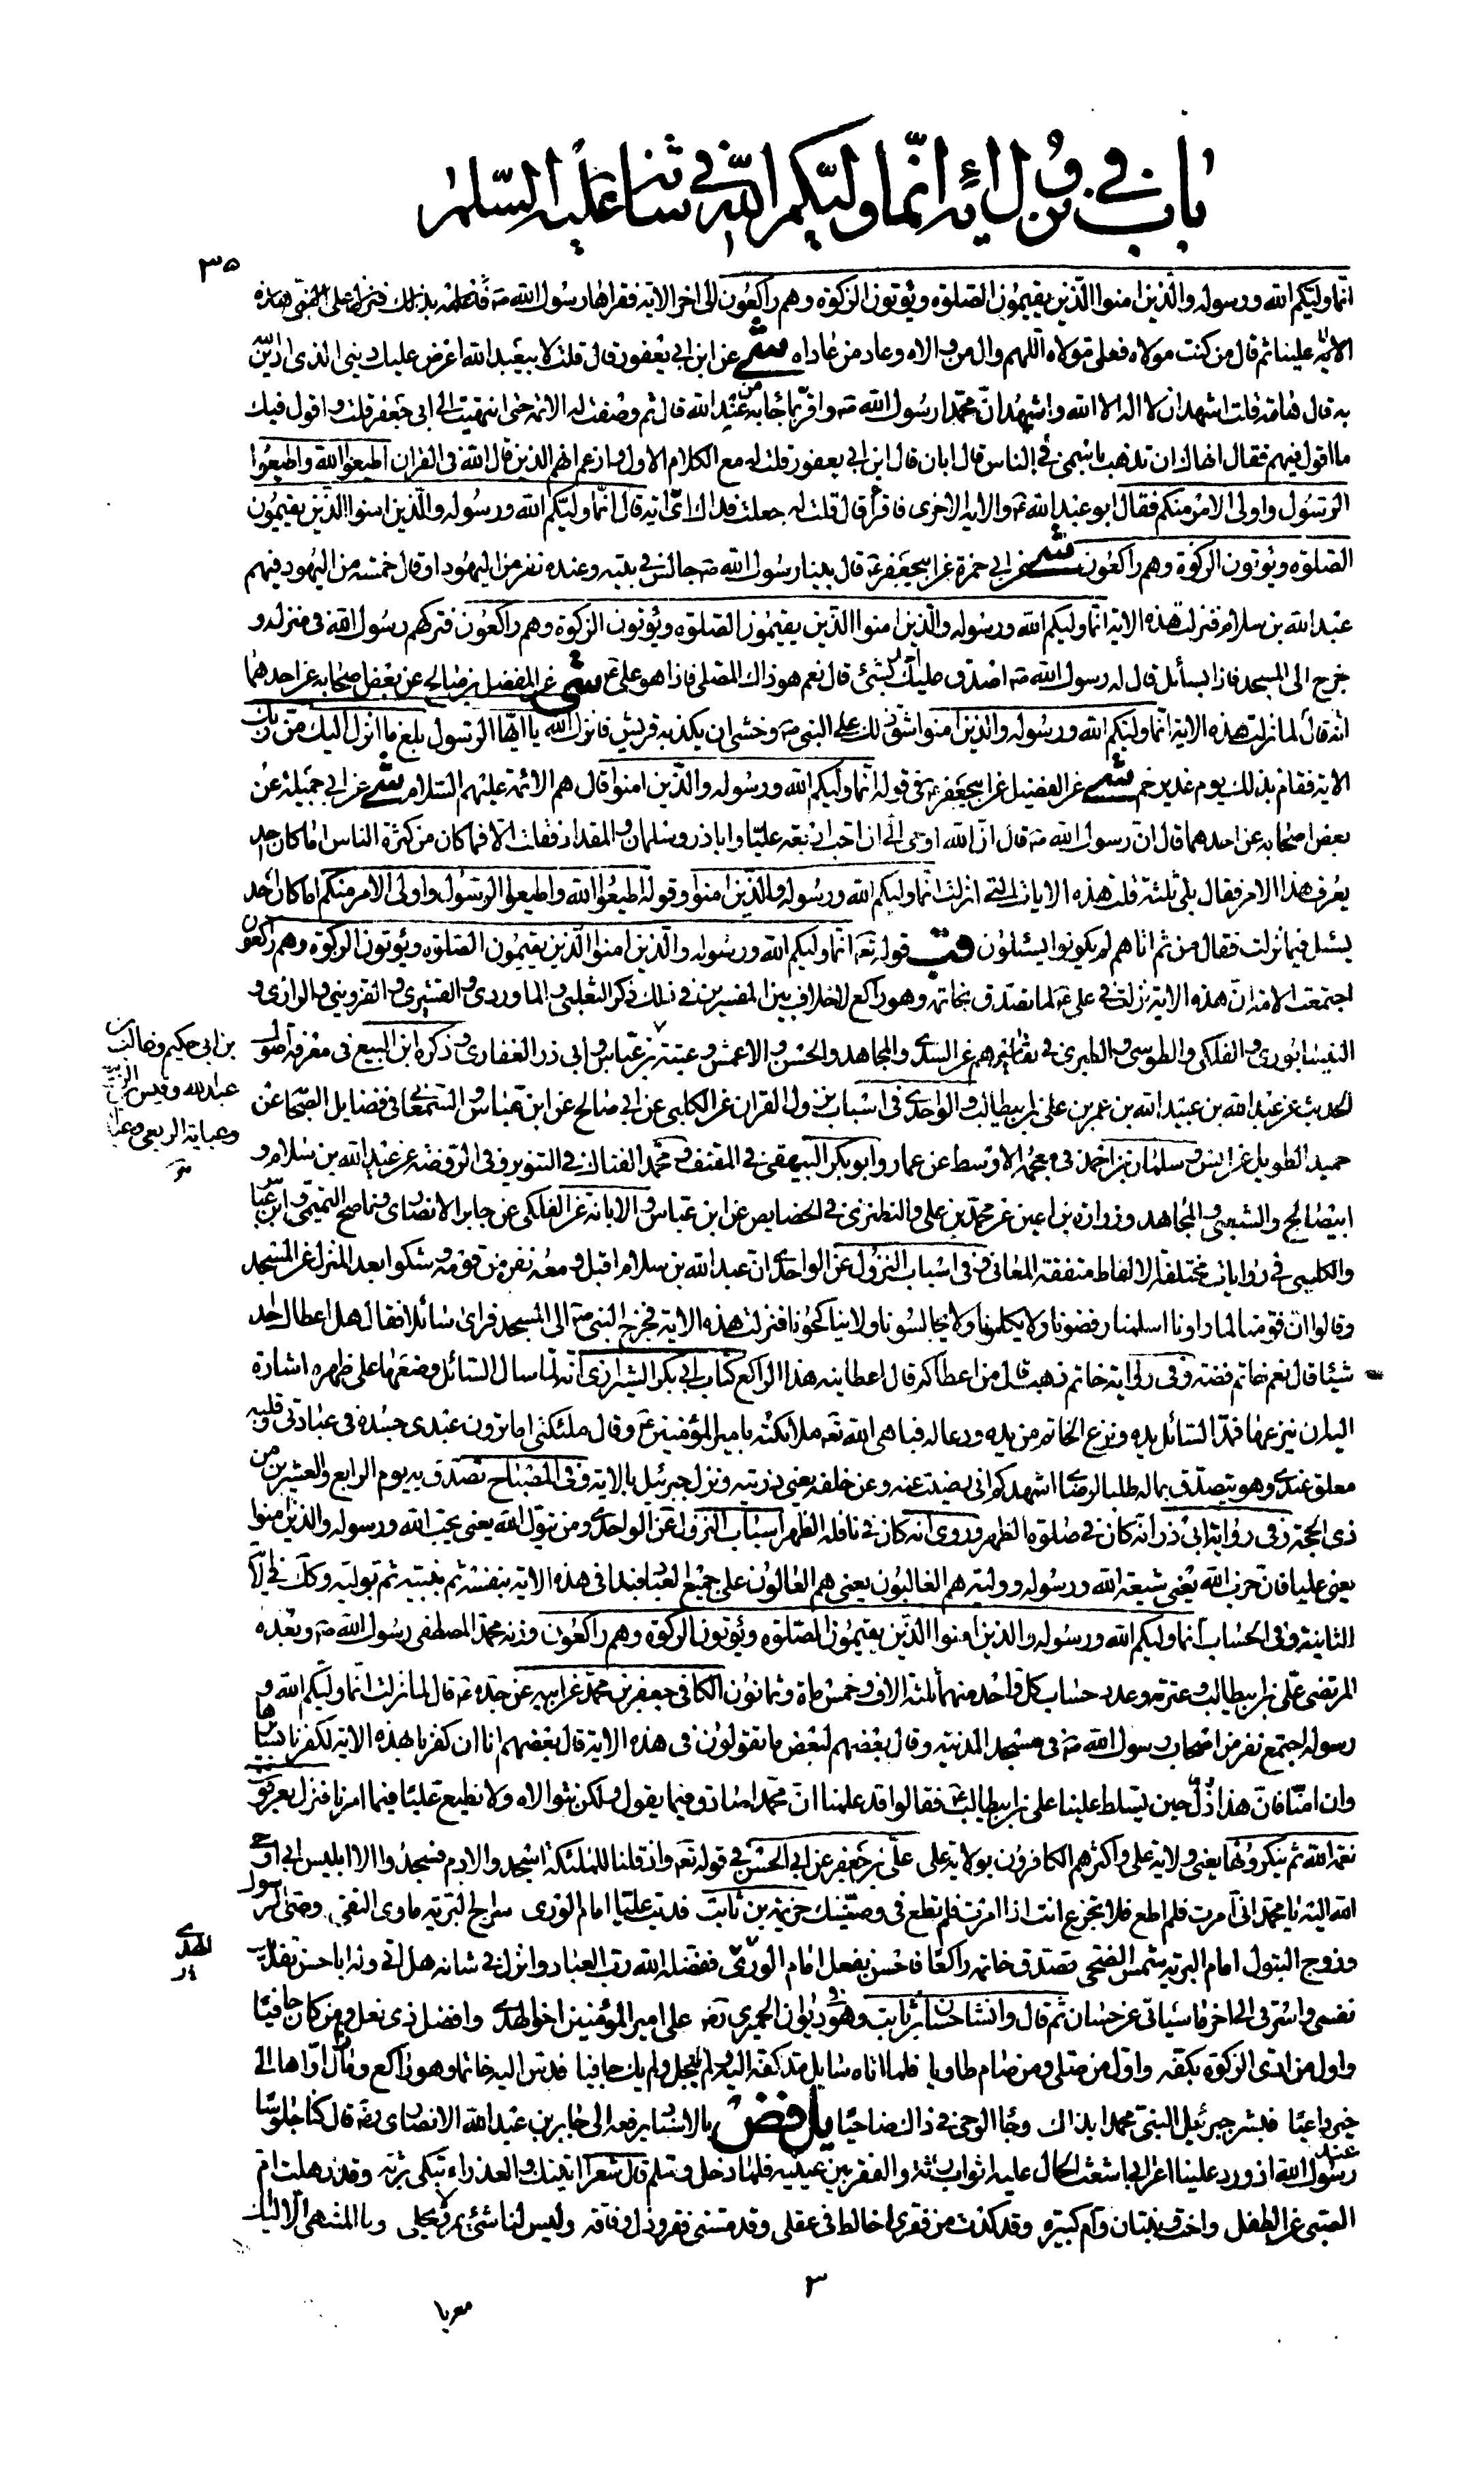 باب في نزول اية انما وليكم الله في شانه عليه السلم
٣٥
انما وليكم الله ورسوله والذين امنوا الذين يقيمون الصلوة ويؤتون الزكوة وهم راكعون الى اخر الاية فقراها رسول الله صَ فنزلت هذه
الاية علينا ثم قال من كنت مولاه فعلى مولاه اللهم وال من والاه وعاد من عاداه شى عن ابن ابي يعفور قال قلت لابيعبد الله اعرض عليك ديني الذي ادين الله
به قال هاته قلت اشهد ان لا اله الا الله واشهد ان محمدا رسول الله صَ واقر بما جاء به من عند الله قال ثم وصفت له الائمة حتى انتهيت الى ابي جعفر قلت واقول فيك
ما اقول فيهم فقال انهاك ان تذهب باسمي في الناس قال ابان قال ابن ابي يعفور قلت له مع الكلام الاول وازعم انهم الذين قال الله في القران اطيعوا الله واطيعوا
الرسول واولى الامر منكم فقال ابو عبد الله عَ والاية الاخرى فاقرأ قال قلت له جعلت فداك اى اية قال انما وليكم الله ورسوله والذين امنوا الذين يقيمون
الصلوة ويؤتون الزكوة وهم راكعون شى عن ابي حمزة عن ابيجعفر عَ قال بينا رسول الله صَ جالس في بيته وعنده نفر من اليهود او قال خمسة من اليهود فيهم
عبد الله بن سلام فنزلت هذه الاية انما وليكم الله ورسوله والذين امنوا الذين يقيمون الصلوة ويؤتون الزكوة وهم راكعون فتركهم رسول الله في منزله و
خرج الى المسجد فاذا بسائل قال له رسول الله صَ اصدق عليك احد بشئ قال نعم هو ذاك المصلى فاذا هو علي عَ شى عن المفضل بن صالح عن بعض اصحابه عن احدهما
انه قال لما نزلت هذه الاية انما وليكم الله ورسوله والذين امنوا شق ذلك على النبى صَ وخشى ان يكذبه قريش فانزل الله يا ايها الرسول بلغ ما انزل اليك من ربك
الاية فقام بذلك يوم غدير خم شى عن الفضيل عن ابيجعفر عَ في قوله انما وليكم الله ورسوله والذين امنوا قال هم الائمة عليهم السلام شى عن ابي جميلة عن
بعض اصحابه عن احدهما قال ان رسول الله صَ قال ان الله اوحى الى ان احب اربعة عليا وابا ذر وسلمان والمقداد فقلت الا فما كان من كثرة الناس اما كان احد
يعرف هذا الامر فقال بلى ثلثة قلت هذه الايات التي انزلت انما وليكم الله ورسوله والذين امنوا وقوله اطيعوا الله واطيعوا الرسول واولى الامر منكم اما كان احد
يسئل فيما نزلت فقال من ثم اتاهم لم يكونوا يسئلون قب قوله تعَ انما وليكم الله ورسوله والذين امنوا الذين يقيمون الصلوة ويؤتون الزكوة وهم راكعون
اجتمعت الامة ان هذه الاية نزلت في علي عَ لما تصدق بخاتمه وهو راكع لا خلاف بين المفسرين في ذلك ذكره الثعلبي والماوردى والقشيرى والقزويني والرازى و
النيسابورى والفلكى والطوسى والطبرى في تفاسيرهم عن السدى والمجاهد والحسن والاعمش وعتبة بن ابي حكيم وغالب بن عبد الله وقيس بن الربيع وعباية الربعى وعبد الله بن عباس وابي ذر الغفارى وذكره ابن البيع في معرفة اصول
الحديث عن عبد الله بن عبيد الله بن عمر بن على بن ابيطالب والواحدى في اسباب نزول القران عن الكلبى عن ابي صالح عن ابن عباس والسمعانى في فضايل الصحابة عن
حميد الطويل عن انس وسلمان بن احمد في معجمه الاوسط عن عمار وابو بكر البيهقى في المصنف ومحمد الفتال في التنوير وفي الروضة عن عبد الله بن سلام و
ابيصالح والشعبى والمجاهد وزرارة بن اعين عن محمد بن على والنطنزى في الخصايص عن ابن عباس والابانة عن الفلكى عن جابر الانصارى وناصح التميمى وابن عباس
والكلبى في روايات مختلفة الالفاظ متفقة المعانى وفي اسباب النزول عن الواحدى ان عبد الله بن سلام اقبل ومعه نفر من قومه وشكوا بعد المنزل عن المسجد
وقالوا ان قومنا لما راونا اسلمنا رفضونا ولا يكلمونا ولا يجالسونا ولا يناكحونا فنزلت هذه الاية فخرج النبى صَ الى المسجد فراى سائلا فقال هل اعطاك احد
شيئا قال نعم خاتم فضة وفي رواية خاتم ذهب قال من اعطاكه قال اعطانيه هذا الراكع كتاب ابي بكر الشيرازى انه لما سال السائل وضعها على ظهره اشارة
اليه ان ينزعها فمد السائل يده ونزع الخاتم من يده ودعا له فباهى الله تعَ ملائكته بامير المؤمنين عَ وقال ملئكتى اما ترون عبدى جسده في عبادتى وقلبه
معلق عندى وهو يتصدق بماله طلبا لرضاى اشهدكم انى رضيت عنه وعن خلفه يعنى ذريته ونزل جبرئيل بالاية وفي المصباح تصدق به يوم الرابع والعشرين من
ذى الحجة وفي رواية ابى ذر انه كان في صلوة الظهر وروى انه كان في نافلة الظهر اسباب النزول عن الواحدى ومن يتول الله يعنى يحب الله ورسوله والذين امنوا
يعنى عليا فان حزب الله يعنى شيعة الله ورسوله ووليه هم الغالبون يعنى هم العالون على جميع العباد فبدا في هذه الاية بنفسه ثم بنبيه ثم بوليه وكذلك في الاية
الثانية وفي الحساب انما وليكم الله ورسوله والذين امنوا الذين يقيمون الصلوة ويؤتون الزكوة وهم راكعون وزنه محمد المصطفى رسول الله صَ وبعده
المرتضى على بن ابيطالب وعترته وعدد حساب كل واحد منهما ثلثة الاف وخمس مأة وثمانون الكافى جعفر بن محمد عن ابيه عن جده عَ قال لما نزلت انما وليكم الله و
رسوله اجتمع نفر من اصحاب رسول الله صَ في مسجد المدينة وقال بعضهم لبعض ما تقولون في هذه الاية قال بعضهم انا ان كفرنا بهذه الاية لكفرنا بسايرها
وان امنا فان هذا ذل حين يتسلط علينا على بن ابيطالب عَ فقالوا قد علمنا ان محمدا صادق فيما يقول ولكن نتوالاه ولا نطيع عليا فيما امرنا فنزل يعرفون
نعمة الله ثم ينكرونها يعنى ولاية على واكثرهم الكافرون بولاية على على بن جعفر عن ابي الحسن عَ في قوله تعَ واذ قلنا للملئكة اسجدوا لادم فسجدوا الا ابليس ابى اوحى
الله اليه يا محمد انى امرت فلم اطع فلا تجزع انت اذا امرت فلم تطع في وصيتك خزيمة بن ثابت فديت عليا امام الورى سراج البرية ماوى التقى وصى الرسول
وزوج البتول امام البرية شمس الضحى تصدق خاتمه راكعا فاحسن بفعل امام الورى ففضله الله رب العباد وانزل في شانه هل اتى وله ابا حسن تفديك
نفسى واسرتى الى اخر ما سيأتى عن حسان ثم قال وانشا حسان بن ثابت وهو في ديوان الحميرى رضَ على امير المؤمنين اخو الهدى وافضل ذى نعل ومن كان حافيا
واول من ادى الزكوة بكفه واول من صلى ومن صام طاويا فلما اتاه سايل مد كفه اليه ولم يبخل ولم يك جافيا فدس اليه خاتما وهو راكع وما زال اواها الى
الخير داعيا فبشر جبرئيل النبى محمدا بذاك وجا الوحى في ذاك ضاحيا يل فض بالاسناد يرفعه الى جابر بن عبد الله الانصارى رضَ قال كنا جلوسا
عند رسول الله اذ ورد علينا اعرابي اشعث الحال عليه اثواب رثة والفقر بين عينيه فلما دخل وسلم قال شعرا اتيتك والعذراء تبكى برنة وقد ذهلت ام
الصبى عن الطفل واخت وبنتان وام كبيرة وقد كدت من فقرى اخالط في عقلى وقد مسنى فقر وذل وفاقة وليس لنا شئ يمر ولا يحلى وما المنتهى الا اليك
بن ابي حكيم وغالب بن
عبد الله وقيس بن الربيع
وعباية الربعى وعبد
الهدى
٣